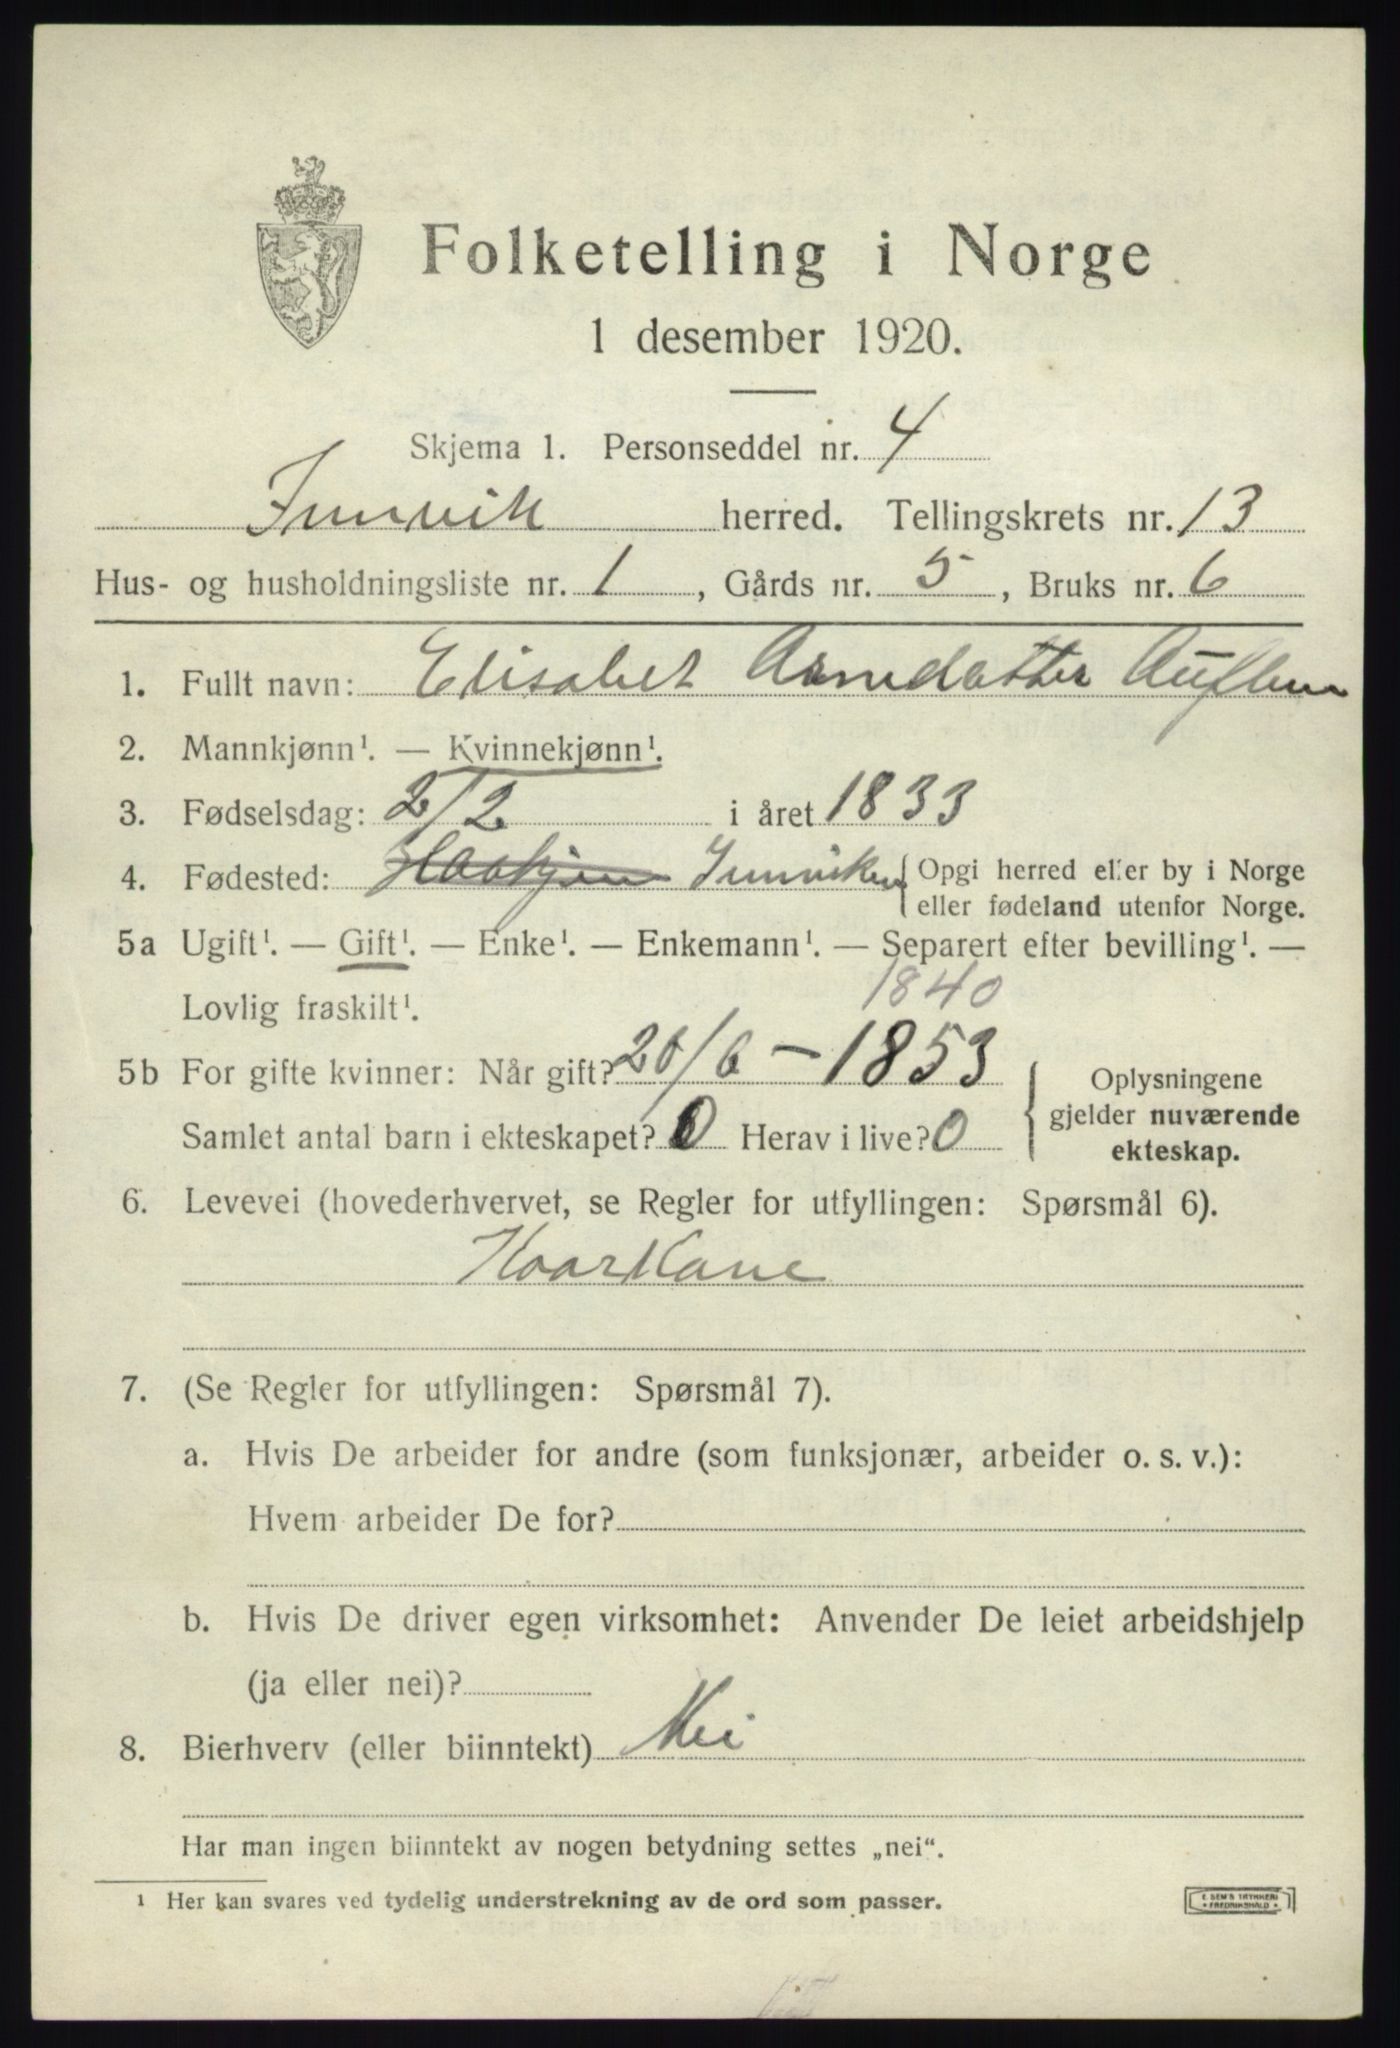 Folketelling i Norge
1 desember 1920.
Skjema 1. Personseddel nr. 4
Innvik herred. Tellingskrets nr. 13
Hus- og husholdningsliste nr. 1, Gårds nr. 5, Bruks nr. 6
1. Fullt navn: Elisabet Arnedatter
2. Mannkjønn¹. — Kvinnekjønn¹.
3. Fødselsdag: 2/2 i året 1833
4. Fødested: Innviken { Opgi herred eller by i Norge
eller fødeland utenfor Norge.
5a Ugift¹. — Gift¹. — Enke¹. — Enkemann¹. — Separert efter bevilling¹. —
Lovlig fraskilt¹.
1840
5b For gifte kvinner: Når gift? 20/6 – 1853
Samlet antal barn i ekteskapet? 0 Herav i live? 0
{ Oplysningene
gjelder nuværende
ekteskap.
6. Levevei (hovederhvervet, se Regler for utfyllingen: Spørsmål 6).
Kaarkane
7. (Se Regler for utfyllingen: Spørsmål 7).
a. Hvis De arbeider for andre (som funksjonær, arbeider o. s. v.):
Hvem arbeider De for?
b. Hvis De driver egen virksomhet: Anvender De leiet arbeidshjelp
(ja eller nei)?
8. Bierhverv (eller biinntekt) Nei
Har man ingen biinntekt av nogen betydning settes „nei“.
¹ Her kan svares ved tydelig understrekning av de ord som passer.
E. SEM'S TRYKKERI
FREDRIKSHALD